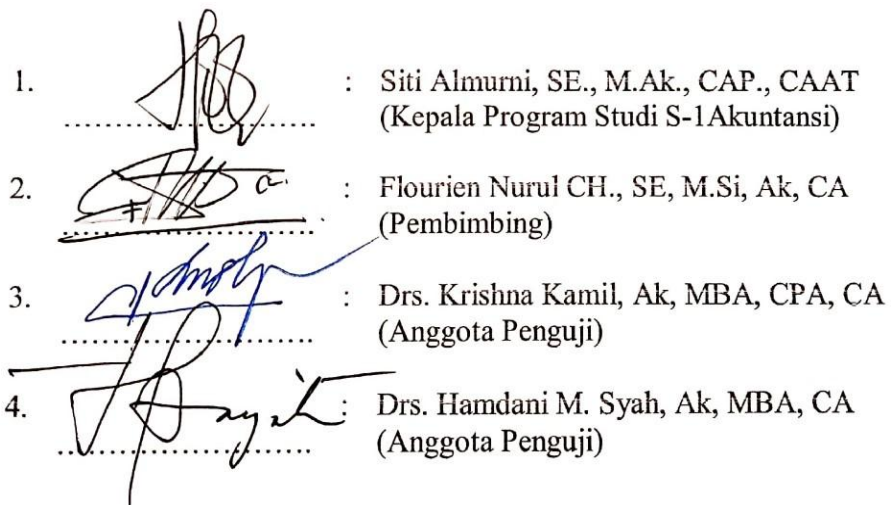 1. : Siti Almurni, SE., M.Ak., CAP., CAAT
(Kepala Program Studi S-1Akuntansi)
2. : Flourien Nurul CH., SE, M.Si, Ak, CA
(Pembimbing)
3. : Drs. Krishna Kamil, Ak, MBA, CPA, CA
(Anggota Penguji)
4. : Drs. Hamdani M. Syah, Ak, MBA, CA
(Anggota Penguji)